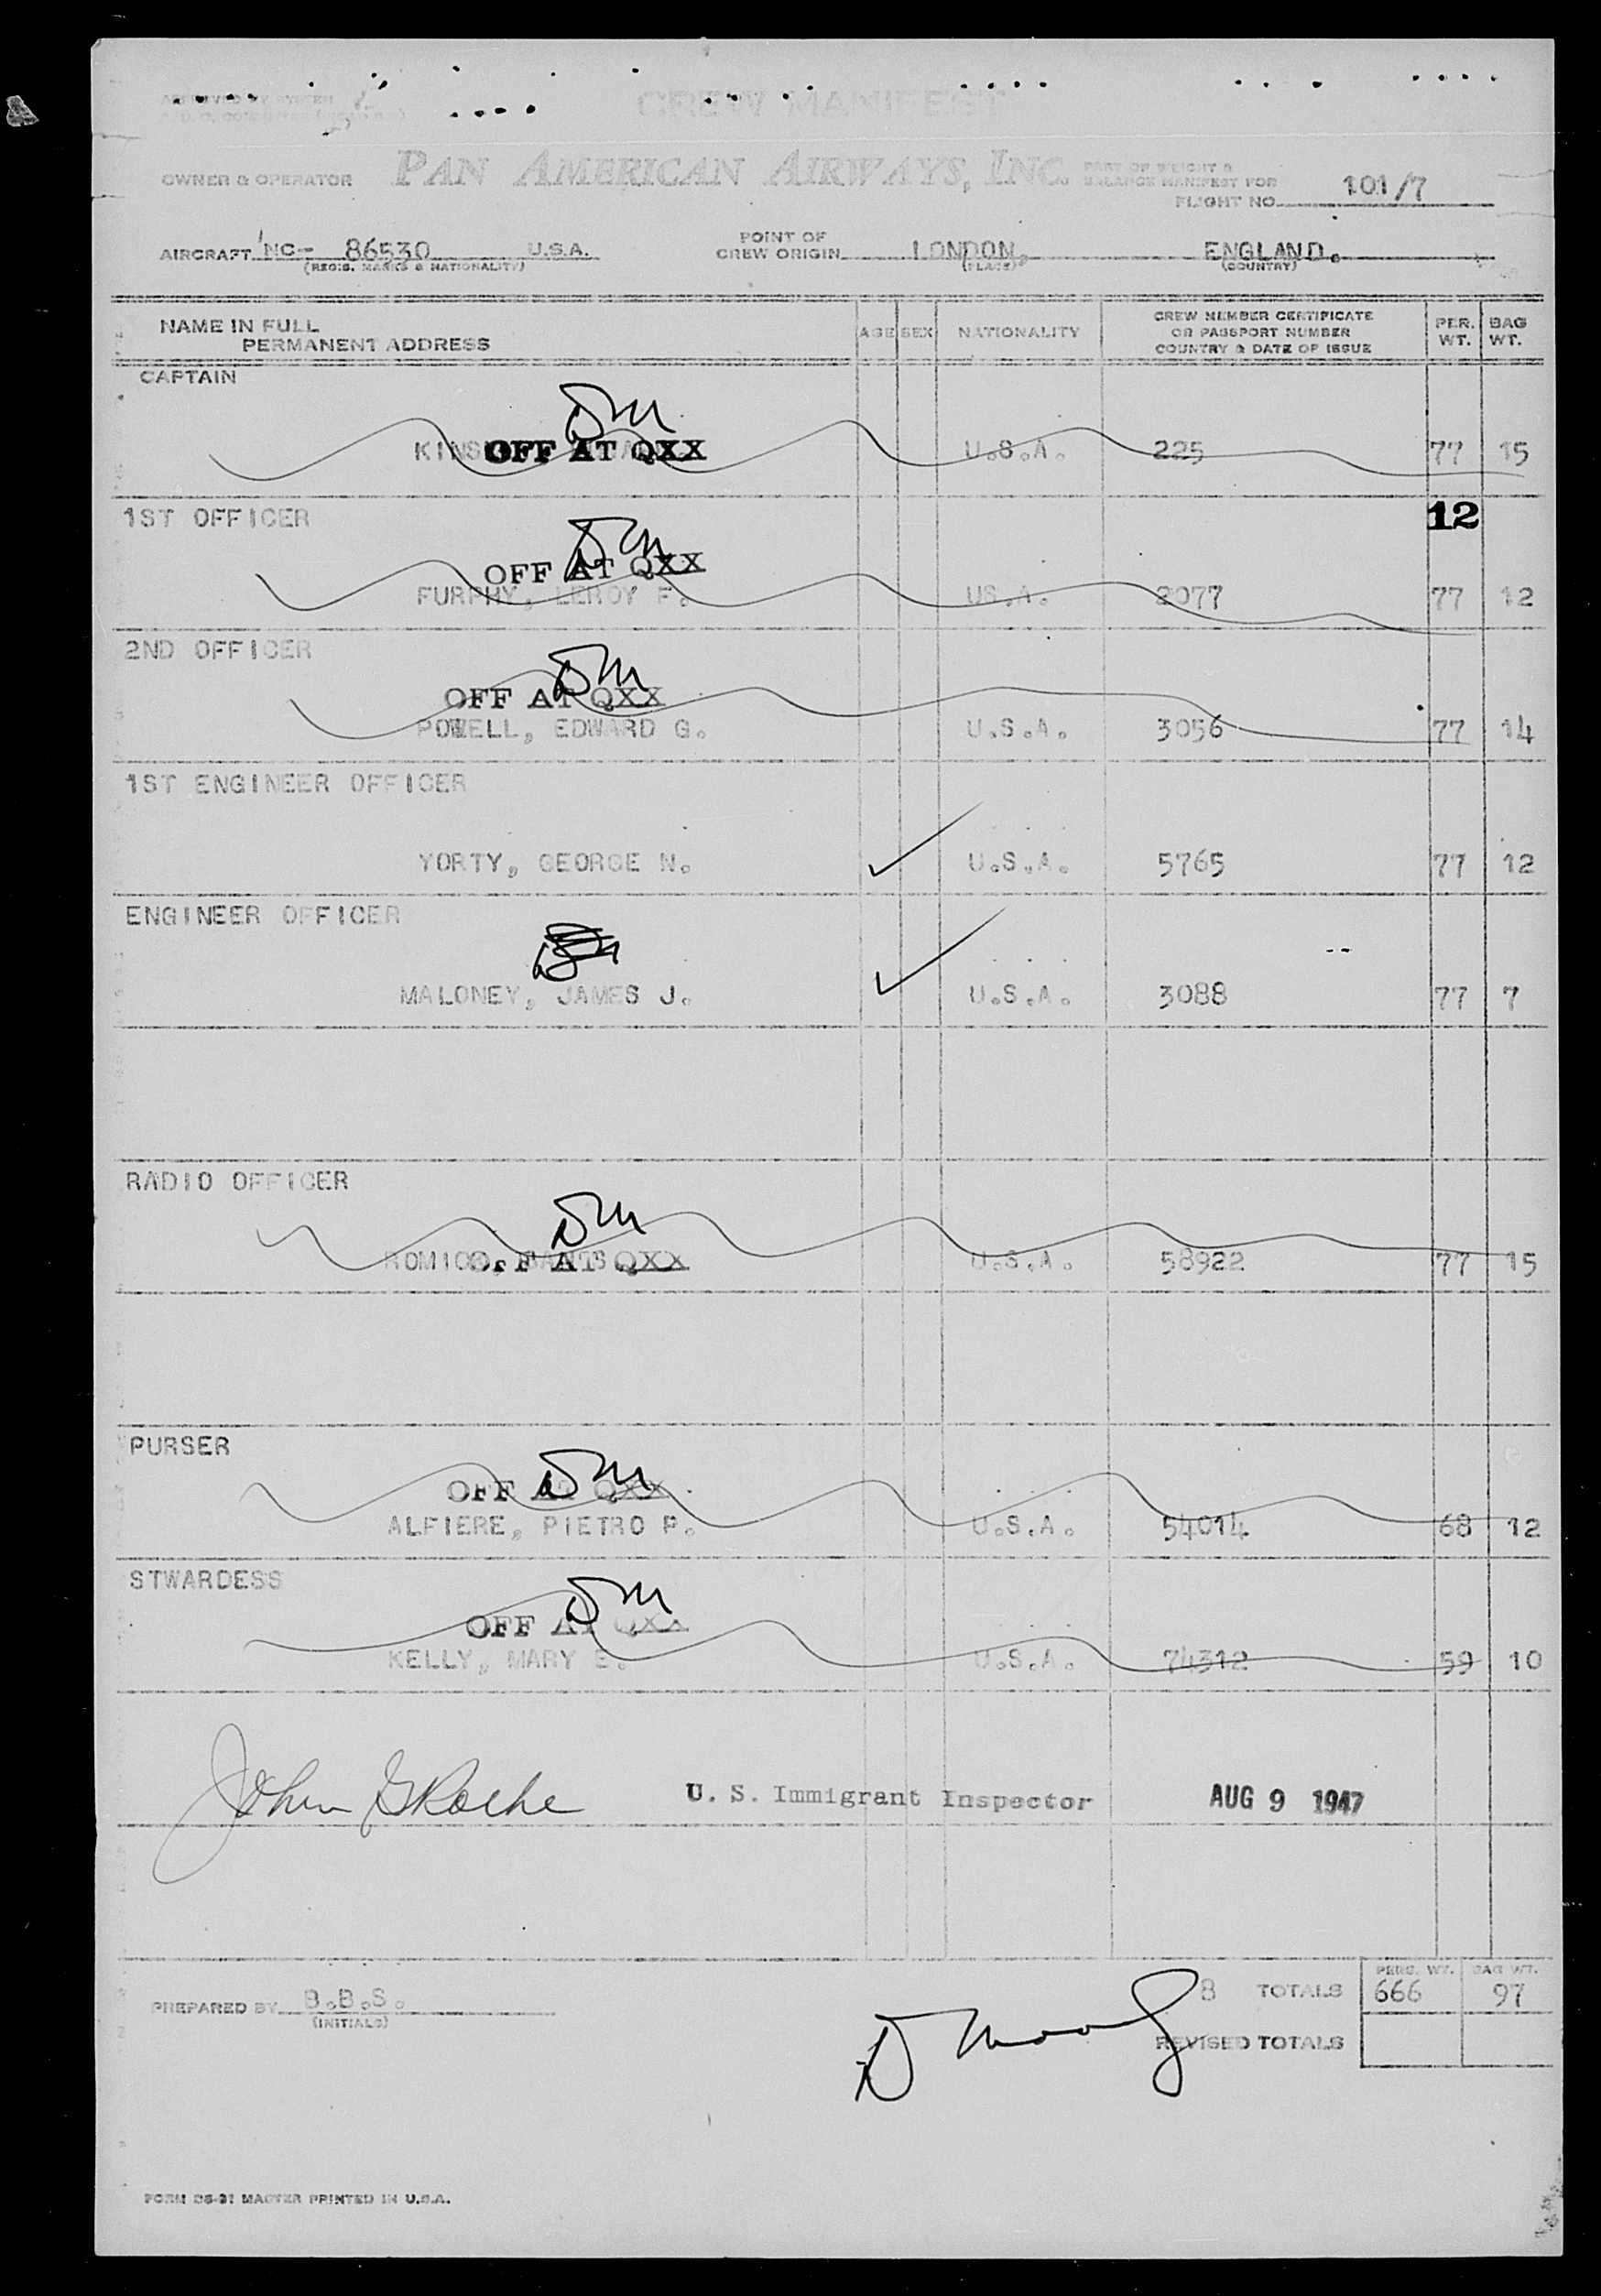 CREW MANIFEST
OWNER & OPERATOR PAN AMERICAN AIRWAYS, INC. PART OF WEIGHT &
BALANCE MANIFEST FOR
FLIGHT NO. 101/7
AIRCRAFT NC- 86530 U.S.A. POINT OF
CREW ORIGIN LONDON, ENGLAND.
(REGIS. MARKS & NATIONALITY) (PLACE) (COUNTRY)
NAME IN FULL
PERMANENT ADDRESS AGE SEX NATIONALITY CREW MEMBER CERTIFICATE
OR PASSPORT NUMBER
COUNTRY & DATE OF ISSUE PER. WT. BAG WT.
CAPTAIN
DM
OFF AT QXX U.S.A. 225 77 15
1ST OFFICER 12
DM
OFF AT QXX
FURPHY, LEROY F. US.A. 2077 77 12
2ND OFFICER
DM
OFF AT QXX
POWELL, EDWARD G. U.S.A. 3056 77 14
1ST ENGINEER OFFICER
YORTY, GEORGE N. U.S.A. 5765 77 12
ENGINEER OFFICER
MALONEY, JAMES J. U.S.A. 3088 77 7
RADIO OFFICER
DM
OFF AT QXX U.S.A. 58922 77 15
PURSER
DM
OFF AT QXX
ALFIERE, PIETRO P. U.S.A. 54014 68 12
STWARDESS
DM
OFF AT QXX
KELLY, MARY E. U.S.A. 74312 59 10
John G Roche U. S. Immigrant Inspector AUG 9 1947
PERS. WT. BAG WT.
PREPARED BY B.B.S. 8 TOTALS 666 97
(INITIALS)
REVISED TOTALS
FORM DS-31 MASTER PRINTED IN U.S.A.